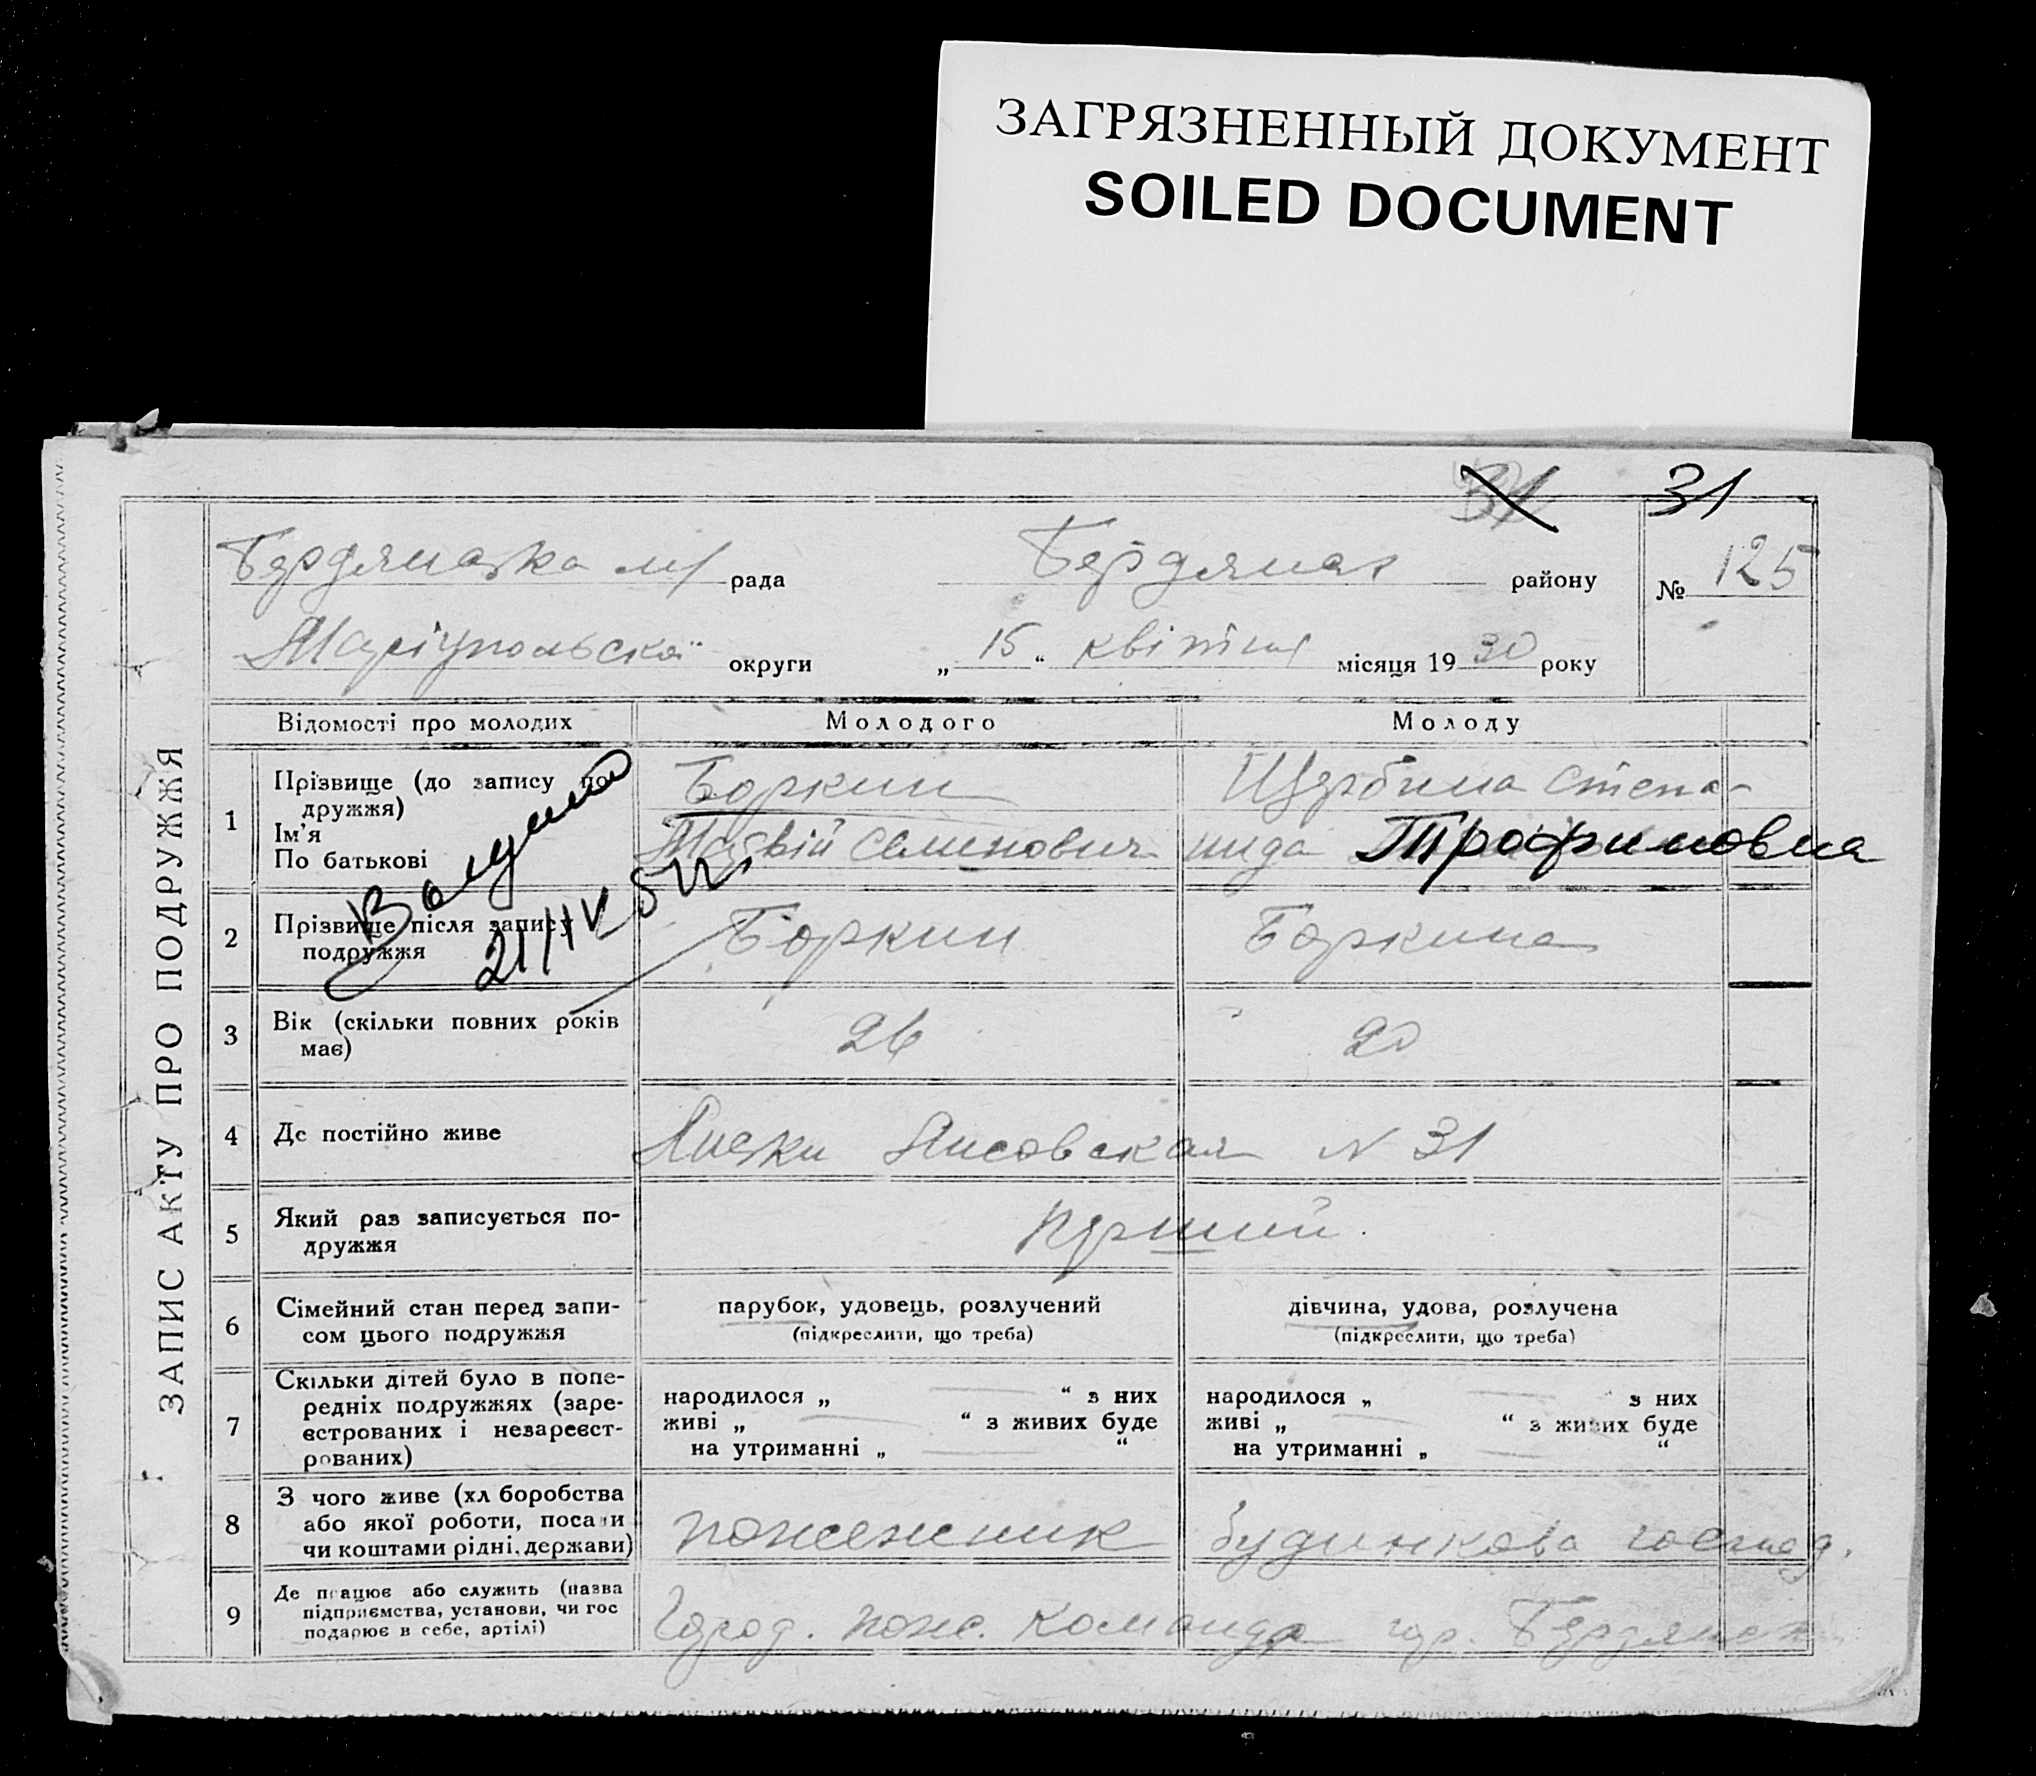 ЗАГРЯЗНЕННЫЙ ДОКУМЕНТ
SOILED DOCUMENT
31 31
Бердянська м/ рада Бердянськ району № 125
Маріупольської округи „ 15 “ квітня місяця 19 30 року
ЗАПИС АКТУ ПРО ПОДРУЖЖЯ
Відомості про молодих Молодого Молоду
1 Прізвище (до запису по-
дружжя)
Ім'я
По батькові
Боркин
Матвій Семенович
Щербина Степа-
нида Трофимовна
21/IV 52 г.
2 Прізвище після запису
подружжя
Боркин Боркина
3 Вік (скільки повних років
має)
26 20
4 Де постійно живе
Лиски Лисовская N 31
5 Який раз записується по-
дружжя
перший.
6 Сімейний стан перед запи-
сом цього подружжя
парубок, удовець, розлучений
(підкреслити, що треба)
дівчина, удова, розлучена
(підкреслити, що треба)
7 Скільки дітей було в попе-
редніх подружжях (заре-
єстрованих і незареєст-
рованих)
народилося „ — “ з них
живі „ — “ з живих буде
на утриманні „ — “
народилося „ — “ з них
живі „ — “ з живих буде
на утриманні „ — “
8 З чого живе (хліборобства
або якої роботи, посади
чи коштами рідні, держави)
пожежник будинкова господ.
9 Де працює або служить (назва
підприємства, установи, чи гос
подарює в себе, артілі)
Город. пож. команда гор. Бердянськ